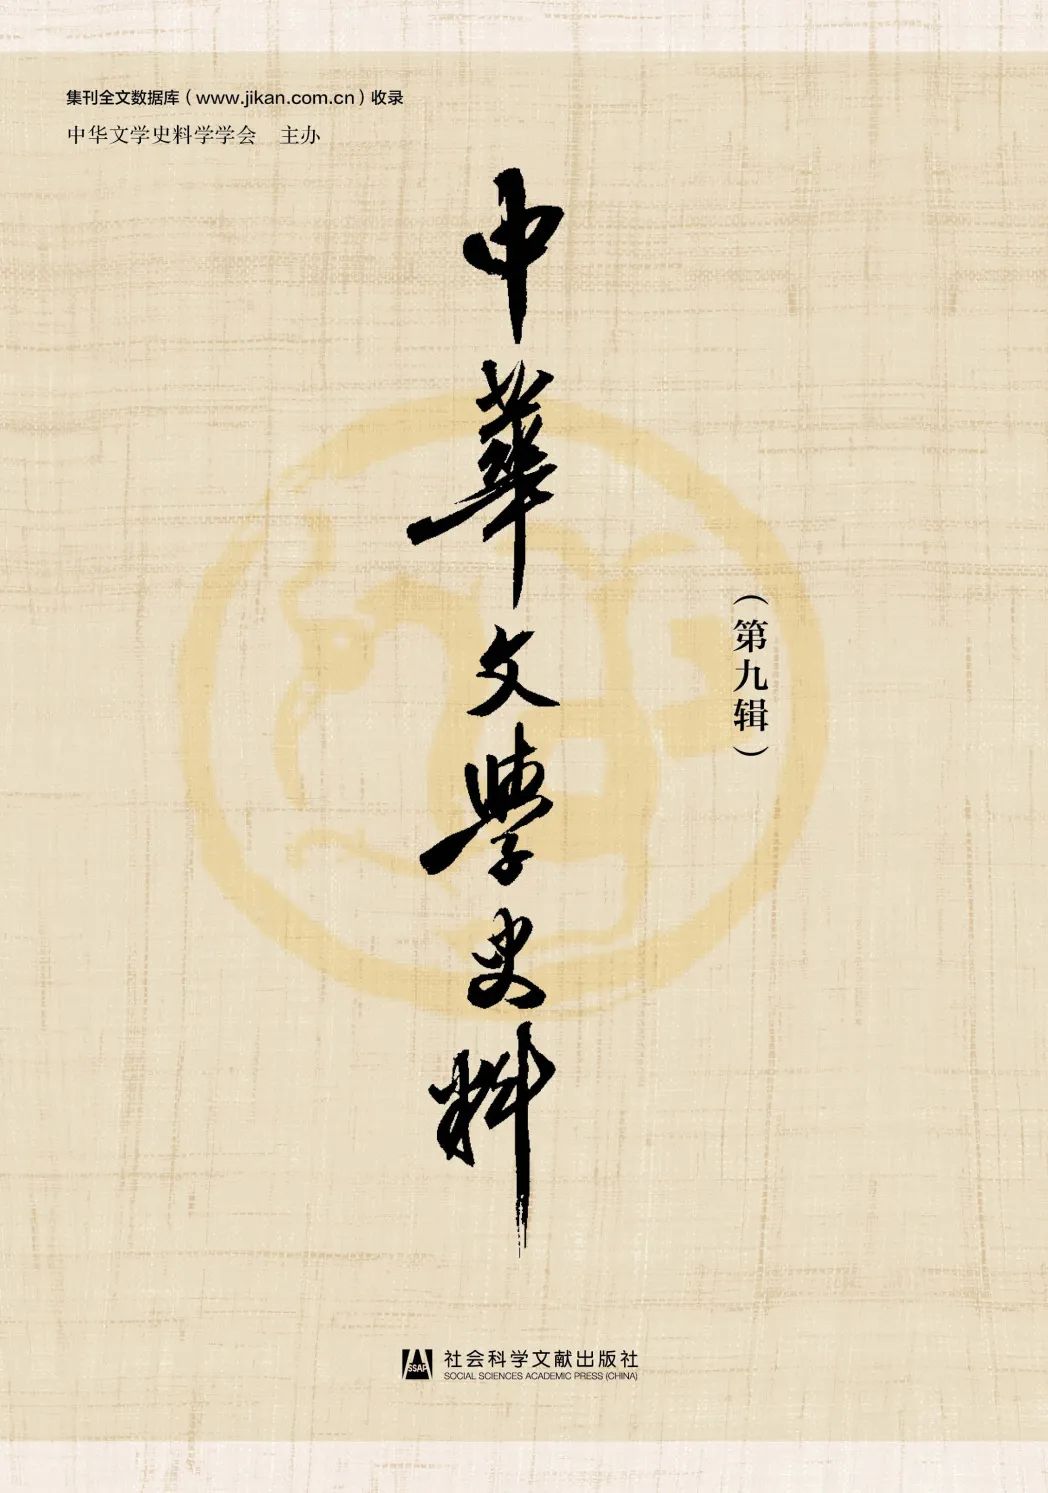 集刊全文数据库（www.jikan.com.cn）收录
中华文学史料学学会　主办
中華文學史料
（第九辑）
SSAP
社会科学文献出版社
SOCIAL SCIENCES ACADEMIC PRESS (CHINA)